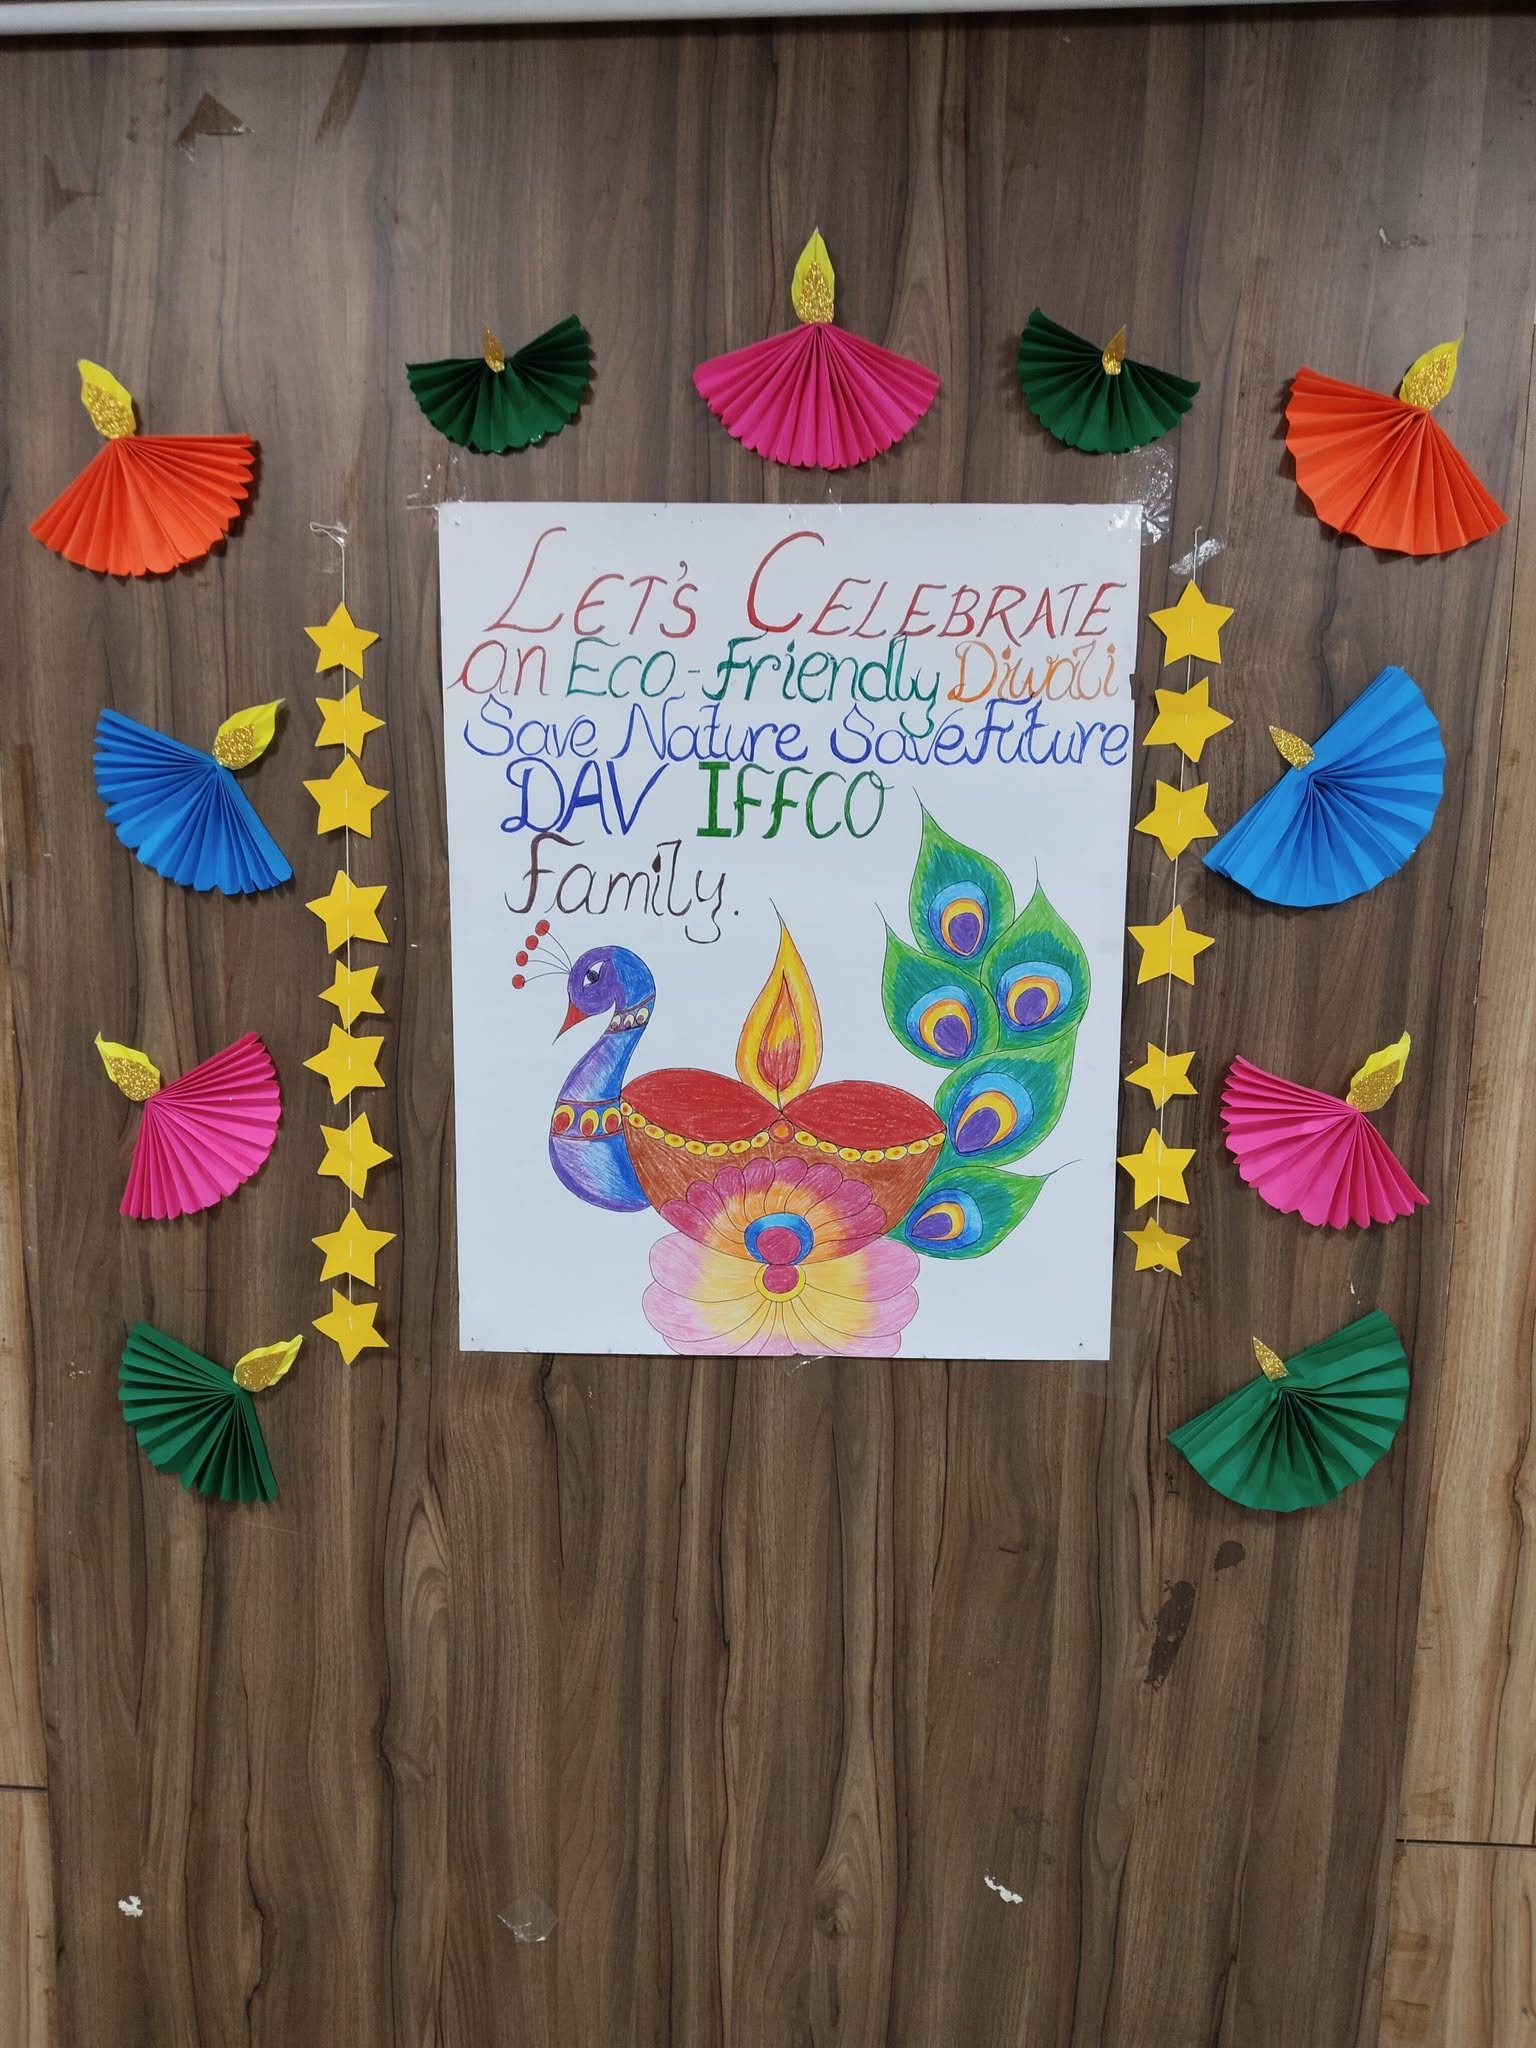 LET'S CELEBRATE
an Eco-Friendly Diwali
Save Nature Save Future
DAV IFFCO
Family.